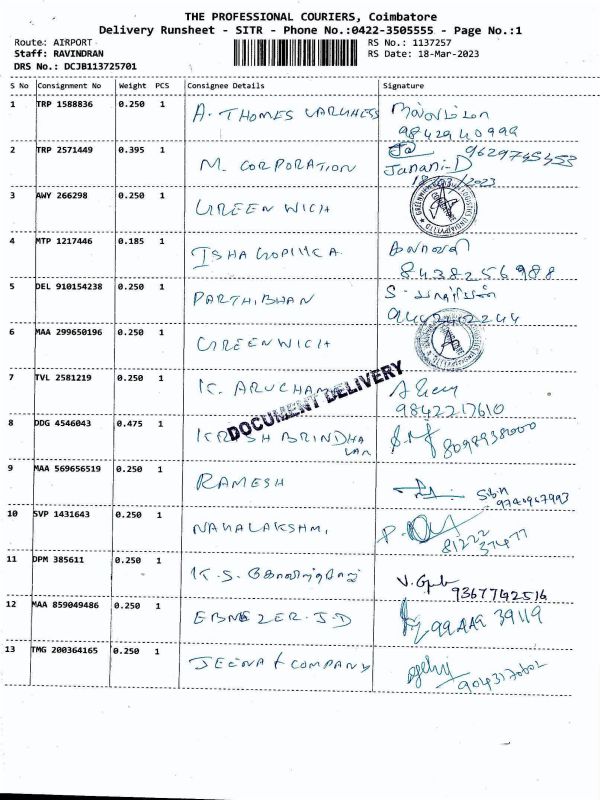 THE PROFESSIONAL COURIERS, Coimbatore
Delivery Runsheet - SITR - Phone No.:0422-3505555 - Page No.:1
Route: AIRPORT RS No.: 1137257
Staff: RAVINDRAN RS Date: 18-Mar-2023
DRS No.: DCJB113725701
S No Consignment No Weight PCS Consignee Details Signature
1 TRP 1588836 0.250 1 A. THOMES VARUHESS
9842940999
2 TRP 2571449 0.395 1 M. CORPORATION 9629745453
Janani-D
18/03/2023
3 AWY 266298 0.250 1 GREENWICH
4 MTP 1217446 0.185 1 ISHA
8438256988
5 DEL 910154238 0.250 1 PARTHIBHAN
9442412244
6 MAA 299650196 0.250 1 GREENWICH
7 TVL 2581219 0.250 1 K. ARUCHAMY
9842217610
DOCUMENT DELIVERY
8 DDG 4546043 0.475 1 KRISH BRINDHA
VAN
9 MAA 569656519 0.250 1 RAMESH
10 SVP 1431643 0.250 1 MAHALAKSHMI
81222
37477
11 DPM 385611 0.250 1 K.S.
9367742516
12 MAA 859049486 0.250 1 EBNEZER.J.D
13 TMG 200364165 0.250 1 JEENA & COMPANY
9043170602